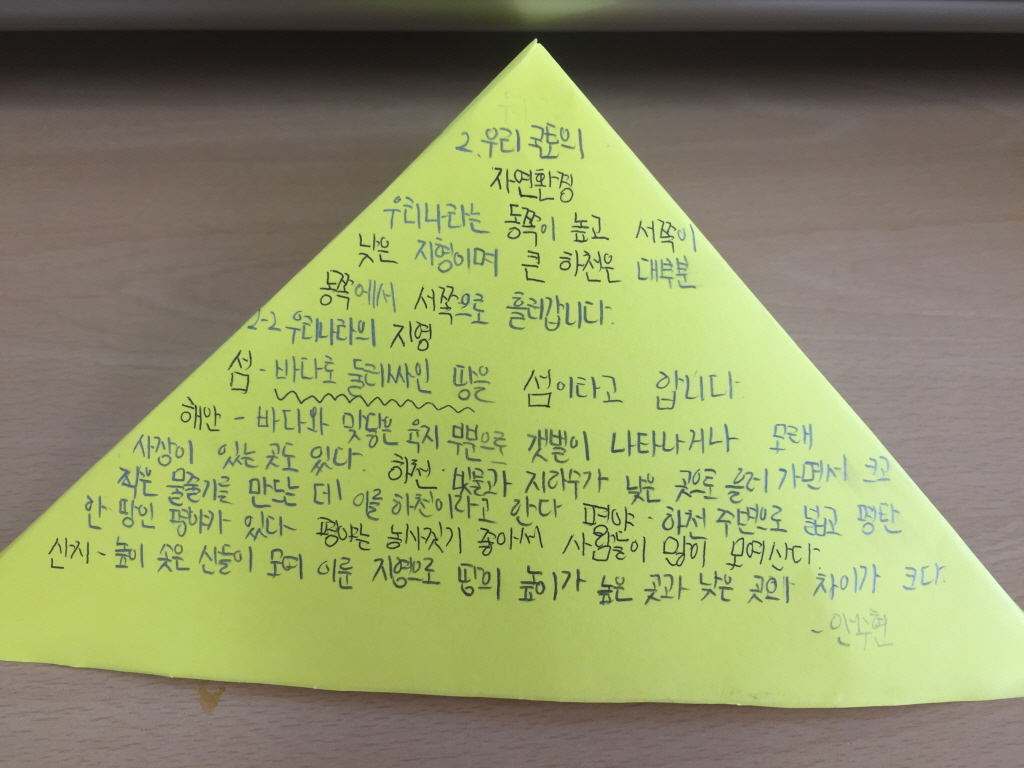 2. 우리 국토의
자연환경
우리나라는 동쪽이 높고 서쪽이
낮은 지형이며 큰 하천은 대부분
동쪽에서 서쪽으로 흘러갑니다.
2-2 우리나라의 지형
섬 - 바다로 둘러싸인 땅을 섬이라고 합니다.
해안 - 바다와 맞닿은 육지 부분으로 갯벌이 나타나거나 모래
사장이 있는 곳도 있다. 하천 - 빗물과 지하수가 낮은 곳으로 흘러 가면서 크고
작은 물줄기를 만드는 데 이를 하천이라고 한다 평야 - 하천 주변으로 넓고 평탄
한 땅인 평야가 있다 평야는 농사짓기 좋아서 사람들이 많이 모여산다.
산지 - 높이 솟은 산들이 모여 이룬 지형으로 땅의 높이가 높은 곳과 낮은 곳의 차이가 크다.
- 안수현